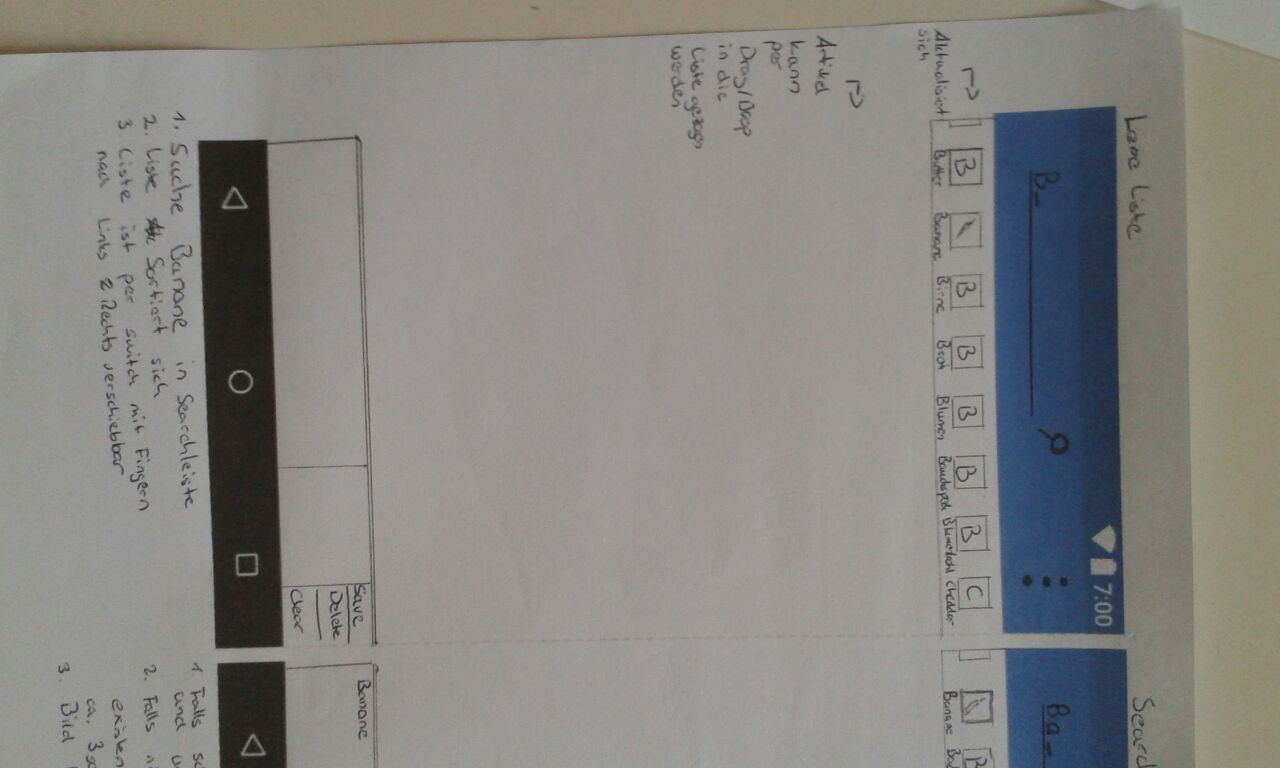 Leere Liste
Search
7:00
B_
Ba_
B
B
B
B
B
B
C
Butter Banane Birne Brot Blumen Bauchspeck Blumenkohl Cheddar
Banane
Aktualisiert
sich
Artikel
kann
per
Drag/Drop
in die
Liste gezogen
werden
Save
Delete
Clear
Banane
1. Suche Banane in Searchleiste
2. Liste Sortiert sich
3. Liste ist per switch mit Fingern
nach Links & Rechts verschiebbar
1. Falls
und
2. Falls
existen
ca. 3
3. Bild